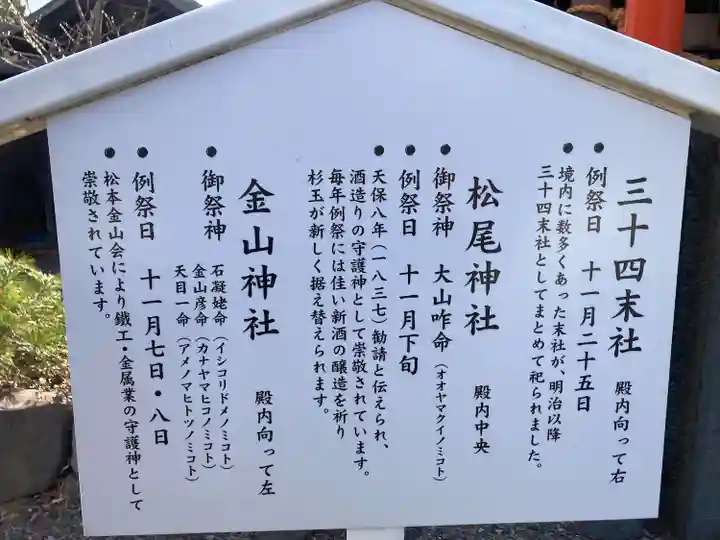 三十四末社　殿内向って右
● 例祭日　十一月二十五日
● 境内に数多くあった末社が、明治以降
三十四末社としてまとめて祀られました。
松尾神社　殿内中央
● 御祭神　大山咋命（オオヤマクイノミコト）
● 例祭日　十一月下旬
● 天保八年（一八三七）勧請と伝えられ、
酒造りの守護神として崇敬されています。
毎年例祭には佳い新酒の醸造を祈り
杉玉が新しく据え替えられます。
金山神社　殿内向って左
● 御祭神　石凝姥命（イシコリドメノミコト）
金山彦命（カナヤマヒコノミコト）
天目一命（アメノマヒトツノミコト）
● 例祭日　十一月七日・八日
● 松本金山会により鐵工・金属業の守護神として
崇敬されています。